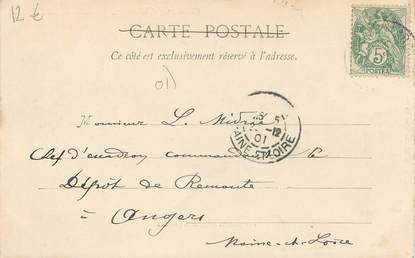 12 €
CARTE POSTALE
Ce côté est exclusivement réservé à l'adresse.
5
POSTES
01
5
-12
01
MAINE-ET-LOIRE
Monsieur L.
Chef d'escadron commandant le
Dépôt de Remonte
à Angers
Maine-et-Loire